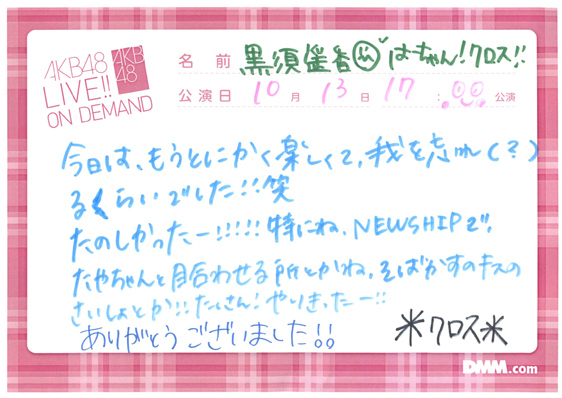 AKB48
LIVE!!
ON DEMAND
AKB
48
名前 黒須遥香 はーちゃん!クロス!!
公演日 10月 13日 17:00 公演
今日は、もうとにかく楽しくて、我を忘れ(?)
るくらいでした!!笑
たのしかったー!!!!!特にね、NEWSHIPで、
たやちゃんと目合わせる所とかね、そばかすのキスの
さいしょとか!!たくさん!やりきったー!!
ありがとうございました!! *クロス*
DMM.com